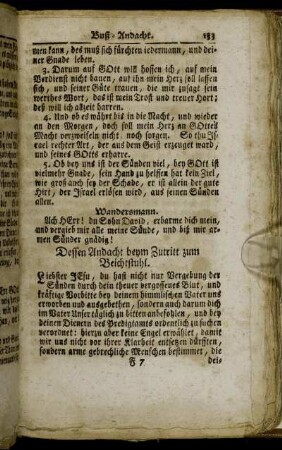 Buß-Andacht. 133
men kann, des muß sich fürchten iedermann, und dei-
ner Gnade leben.
3. Darum auf GOtt will hoffen ich, auf mein
Verdienst nicht bauen, auf ihn mein Herz soll lassen
sich, und seiner Güte trauen, die mir zusagt sein
werthes Wort, das ist mein Trost und treuer Hort;
deß will ich allzeit harren.
4. Und ob es währt bis in die Nacht, und wieder
an den Morgen, doch soll mein Herz an GOttes
Macht verzweifeln nicht, noch sorgen. So thu Is-
rael rechter Art, der aus dem Geist erzeuget ward,
und seines GOtts erharre.
5. Ob bey uns ist der Sünden viel, bey GOtt ist
vielmehr Gnade, sein Hand zu helfen hat kein Ziel,
wie groß auch sey der Schade, er ist allein der gute
Hirt, der Israel erlösen wird, aus seinen Sünden
allen.
Wandersmann.
Ach HErr! du Sohn David, erbarme dich mein,
und vergieb mir alle meine Sünde, und biß mir ar-
men Sünder gnädig!
Dessen Andacht beym Zutritt zum
Beichtstuhl.
Liebster JEsu, du hast nicht nur Vergebung der
Sünden durch dein theuer vergossenes Blut, und
kräftige Vorbitte bey deinem himmlischen Vater uns
erworben und ausgebethen, sondern auch darum dich
im Vater Unser täglich zu bitten anbefohlen, und bey
deinen Dienern des Predigtamts ordentlich zu suchen
verordnet: hierzu aber keine Engel erwählet, damit
wir uns nicht vor ihrer Klarheit entsetzen dürfften,
sondern arme gebrechliche Menschen bestimmet, die
F 7 dei-